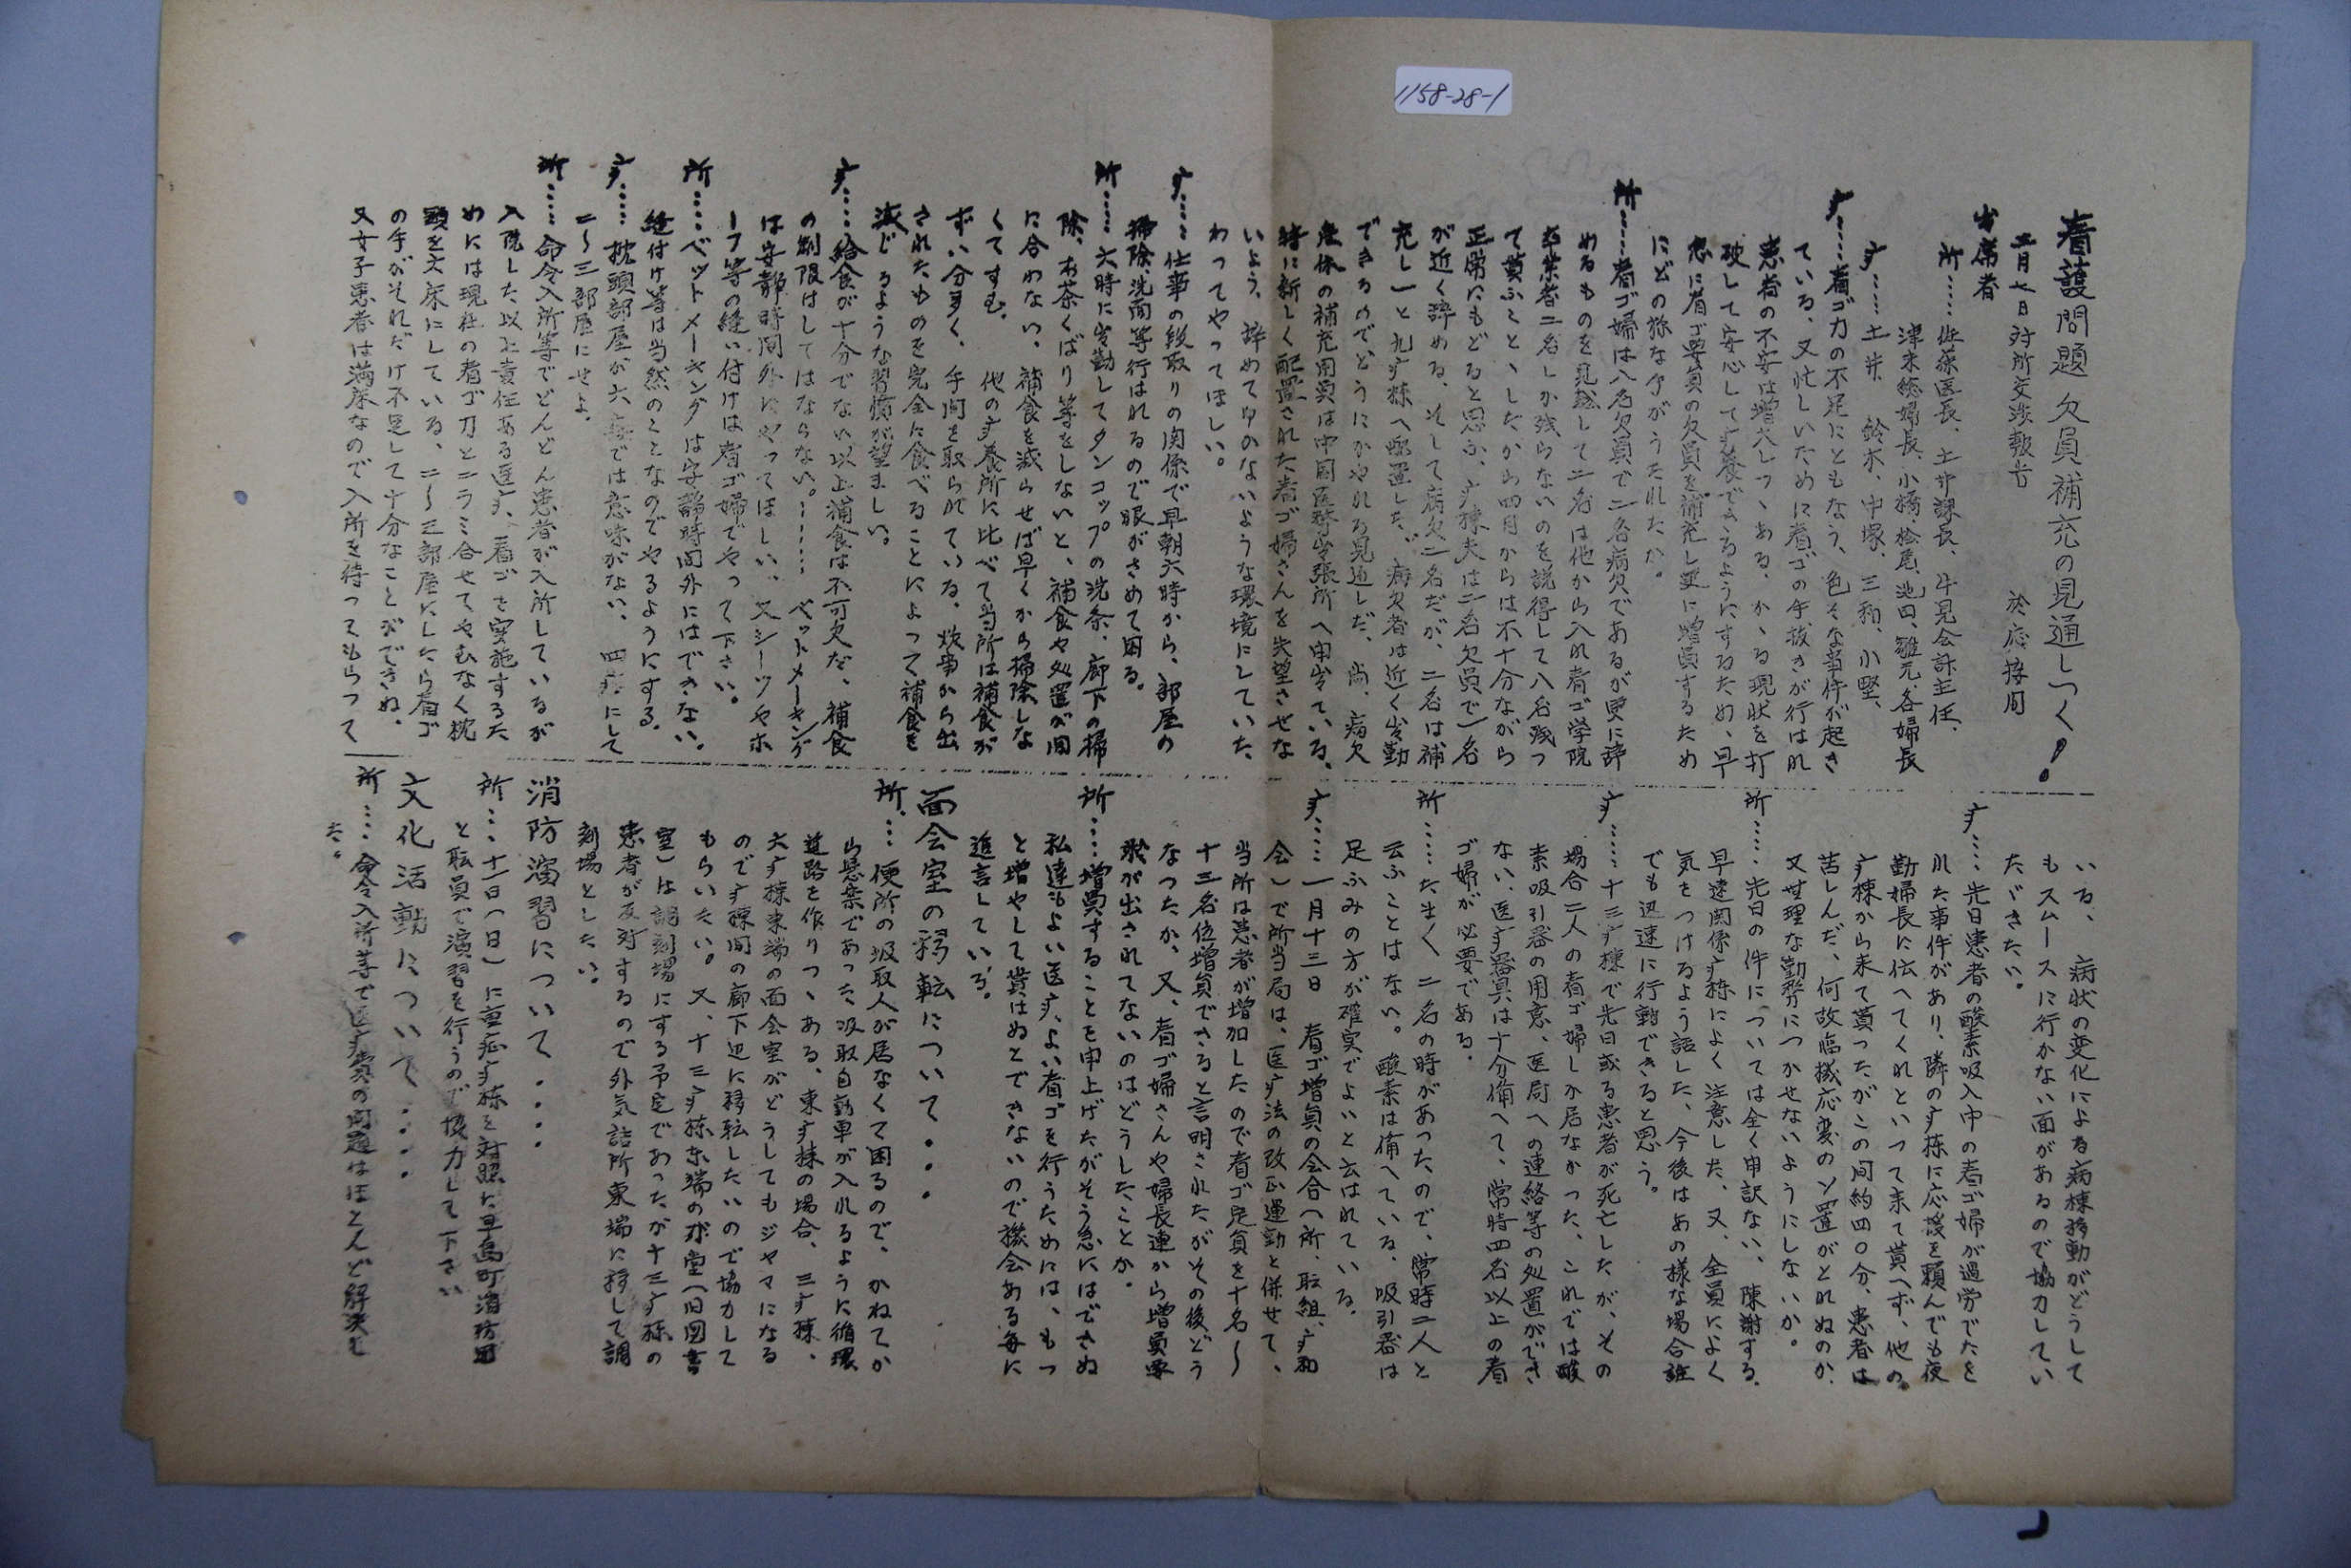 1158-28-1
看護問題 欠員補充の見通しつく!。
三月七日対所交渉報告 於応接間
出席者
所……佐藤医長、土井課長、牛見会計主任、
津来総婦長、小橋、松尾、池田、難元、各婦長
疒……土井 鈴木、中塚、三和、小野、
疒……看ゴ力の不足にともなう、色々な事件が起き
ている、又忙しいために看ゴの手抜きが行はれ
患者の不安は増大しつゝある、かゝる現状を打
破して安心して疒養できるようにするため、早
急に看ゴ要員の欠員を補充し更に増員するため
にどの様な手がうたれたか。
所……看ゴ婦は八名欠員で二名病欠であるが更に辞
めるものを見越して二名は他から入れ看ゴ学院
卒業者二名しか残らないのを説得して八名残っ
て貰ふことゝしたから四月からは不十分ながら
正常にもどると思ふ、疒棟夫は二名欠員で一名
が近く辞める、そして病欠二名だが、二名は補
充し一と九疒棟へ配置した、病欠者は近く出勤
できるのでどうにかやれる見通しだ、尚、病欠
産休の補充用員は中国医務出張所へ申出ている、
特に新しく配置された看ゴ婦さんを失望させな
いよう、辞めてゆかないような環境にしていた
わってやってほしい。
疒……仕事の段取りの関係で早朝六時から、部屋の
掃除、洗面等行はれるので眼がさめて困る。
所……六時に出勤してタンコップの洗条、廊下の掃
除、お茶くばり等をしないと、補食や処置が間
に合わない、補食を減らせば早くから掃除しな
くてすむ、他の疒養所に比べて当所は補食が
ずい分多く、手間を取られている、炊事から出
されたものを完全に食べることによって補食を
減じるような習慣が望ましい。
疒……給食が十分でない以上補食は不可欠だ、補食
の制限はしてはならない。……ベットメーキング
は安静時間外にやってほしい、又シーツやホ
ーフ等の縫い付けは看ゴ婦でやって下さい。
所……ベットメーキングは安静時間外にはできない。
縫付け等は当然のことなのでやるようにする。
疒……枕頭部屋が六床では意味がない、四床にして
二〜三部屋にせよ。
所……命令入所等でどんどん患者が入所しているが
入院した以上責任ある医疒、看ゴを実施するた
めには現在の看ゴ力とニラミ合せてやむなく枕
頭を六床にしている、二〜三部屋にしたら看ゴ
の手がそれだけ不足して十分なことができぬ、
又女子患者は満床なので入所を待ってもらって
いる、病状の変化による病棟移動がどうして
もスムースに行かない面があるので協力してい
たゞきたい。
疒……先日患者の酸素吸入中の看ゴ婦が過労でたを
れた事件があり、隣の疒棟に応援を頼んでも夜
勤婦長に伝へてくれといって来て貰へず、他の
疒棟から来て貰ったがこの間約四〇分、患者は
苦しんだ、何故臨機応変のソ置がとれぬのか、
又無理な勤務につかせないようにしないか。
所……先日の件については全く申訳ない、陳謝する、
早速関係疒棟によく注意した、又、全員によく
気をつけるよう話した、今後はあの様な場合誰
でも迅速に行動できると思う。
疒……十三疒棟で先日或る患者が死亡したが、その
場合二人の看ゴ婦しか居なかった、これでは酸
素吸引器の用意、医局への連絡等の処置ができ
ない、医疒器具は十分備へて、常時四名以上の看
ゴ婦が必要である。
所……たまく二名の時があったので、常時二人と
云ふことはない。酸素は備へている、吸引器は
足ふみの方が確実でよいと云はれている。
疒……一月十三日 看ゴ増員の会合(所、職組、疒和
会)で所当局は、医疒法の改正運動と併せて、
当所は患者が増加したので看ゴ定員を十名〜
十三名位増員できると言明されたがその後どう
なったか、又、看ゴ婦さんや婦長連から増員要
求が出されてないのはどうしたことか。
所……増員することを申上げたがそう急にはできぬ
私達もよい医疒、よい看ゴを行うためには、もっ
と増やして貰はぬとできないので機会ある毎に
進言している。
面会室の移転について...
所…便所の汲取人が居なくて困るので、かねてか
ら懸案であった汲取自動車が入れるように循環
道路を作りつゝある、東疒棟の場合、三疒棟、
六疒棟東端の面会室がどうしてもジャマになる
ので疒棟間の廊下辺に移転したいので協力して
もらいたい。又、十三疒棟東端の求堂(旧図書
室)は調剤場にする予定であったが十三疒棟の
患者が反対するので外気詰所東端に移して調
剤場としたい。
消防演習について....
所…十一日(日)に重症疒棟を対照に早島町消防団
と職員で演習を行うので協力して下さい
文化活動について....
所……命令入所等で医疒費の問題はほとんど解決し
た。